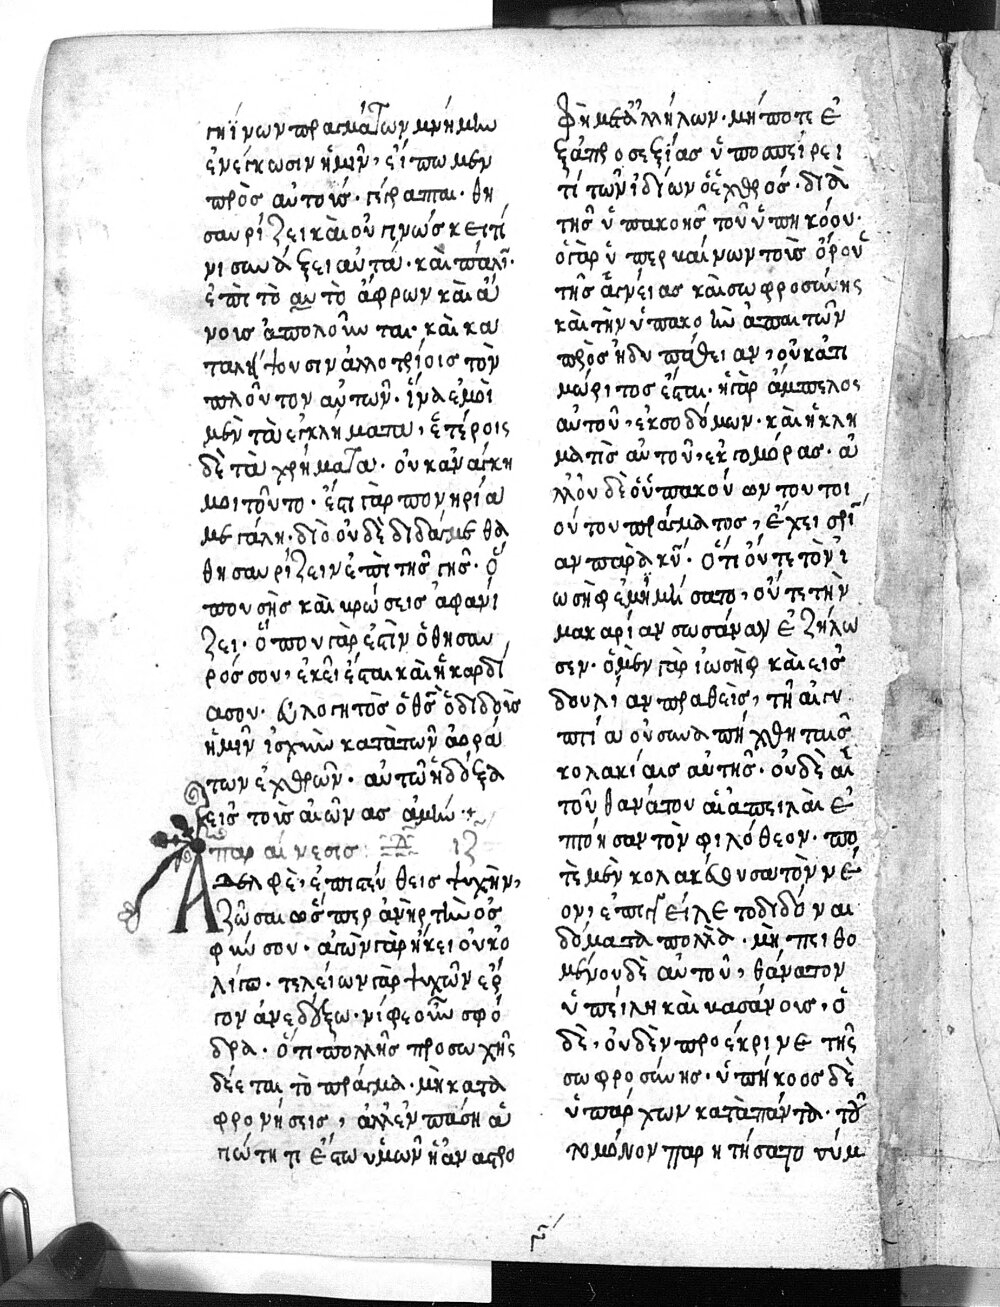 γηΐνων πραγμάτων μνήμην
ἐνέγκωσιν ἡμῖν, εἴπωμεν
πρὸς αὐτούς· γέγραπται· θη
σαυρίζει καὶ οὐ γινώσκει τί
νι συνάξει αὐτά· καὶ πάλιν·
ἐπὶ τὸ αὐτὸ ἄφρων καὶ ἄ
νους ἀπολοῦνται· καὶ κα
ταλείψουσιν ἀλλοτρίοις τὸν
πλοῦτον αὐτῶν· ἵνα ἐμοὶ
μὲν τὰ ἐγκλήματα, ἑτέροις
δὲ τὰ χρήματα· οὐκ ἀνάγκη
μοι τοῦτο· ἔστι γὰρ πονηρία
μεγάλη· διὸ οὐδὲ διδάγμεθα
θησαυρίζειν ἐπὶ τῆς γῆς· ὅ
που σὴς καὶ βρώσεις ἀφανί
ζει· ὅπου γάρ ἐστὶν ὁ θησαυ
ρός σου, ἐκεῖ ἔσται καὶ ἡ καρδί
α σου· εὐλογητὸς ὁ θς ὁ διδοὺς
ἡμῖν ἰσχὺν κατὰ τῶν ἀορά
των ἐχθρῶν· αὐτῶ ἡ δόξα
εἰς τοὺς αἰῶνας ἀμήν +
παραίνεσις
Ἀδελφὲ, ἐπιστευθεὶς ψυχὴν,
ζῶσαι ὥσπερ ἀνὴρ τὴν ὀσ
φύν σου· ἀγὼν γὰρ ἥκει οὐκ ὀ
λίγος· τελείων γὰρ ψυχῶν ἔρ
γον ἀνεδέξω· νίφε οὖν σφό
δρα· ὅτι πολλῆς προσωχῆς
δέεται τὸ πράγμα· μὴ κατα
φρονήσεις, ἀλλ' ἐν πάση ἁ
γιώτητι ἔστω ὑμῶν ἡ ἀναστρο
φὴ μετ' ἀλλήλων· μήποτε ἐ
ξ ἀπροσεξίας ὑποσπείρει
τί τῶν ἰδίων ὁ ἐχθρός· διὰ
τῆς ὑπακοῆς τοῦ ὑπηκόου·
ὁ γὰρ ὑπερβαίνων τοὺς ὅρους
τῆς ἁγνείας καὶ σωφροσύνης
καὶ τὴν ὑπακοὴν ἀπαιτῶν
πρὸς ἡδυπάθειαν, οὐκ ἀτι
μώριτος ἔσται· ἡ γὰρ ἄμπελος
αὐτοῦ, ἐκ σοδόμων· καὶ ἡ κλη
ματὶς αὐτοῦ, ἐκ γομόρας· ἀ
λλ' οὐδὲ ὁ ὑπακούων του τοι
ούτου πράγματος, ἔχει σρί
αν παρὰ κυ· ὅτι οὔτε τὸν ἰ
ωσὴφ ἐμημήσατο, οὔτε τὴν
μακαρίαν σωσάναν ἐζήλω
σεν· ὁ μὲν γὰρ ἰωσὴφ καὶ εἰς
δουλίαν πραθεὶς, τῆ αἰγυ
πτία οὐ συναπήχθη ταῖς
κολακίαις αὐτῆς· οὐδὲ αἱ
τοῦ θανάτου αἱ ἀπειλαὶ ἐ
πτόησαν τὸν φιλόθεον· πο
τὲ μὲν κολακεύουσα τὸν νέ
ον, ἐπηγγείλετο διδόναι
δόματα πολλὰ· μὴ πειθο
μένου δὲ αὐτοῦ, θάνατον
ὑπείλη καὶ βασάνους, ὁ
δὲ, οὐδὲν προέκρινε τῆς
σωφροσύνης· ὑπήκοος δὲ
ὑπάρχων κατὰ πάντα· τοῦ
το μόνον παρητήσατο τύμ